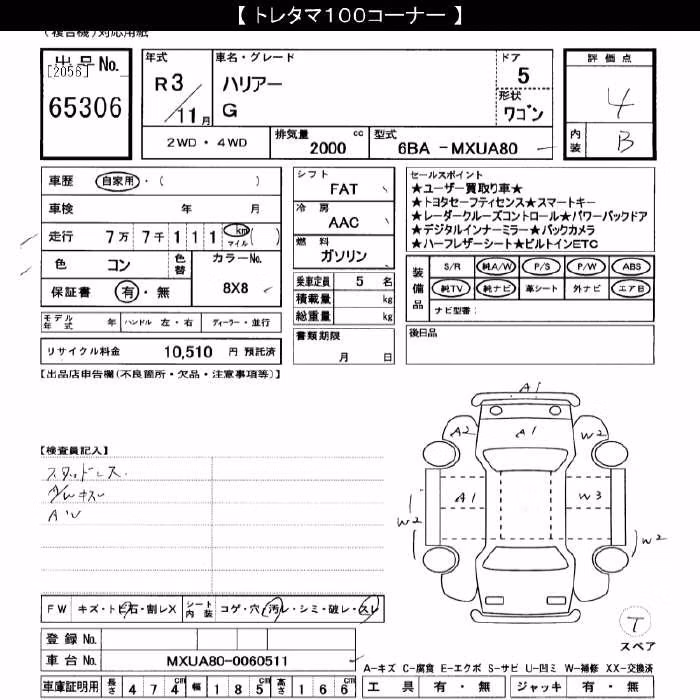 【 トレタマ100コーナー 】
(複合機)対応用紙
出品No.
[2056]
65306
年式
R3/11月
車名・グレード
ハリアー
G
ドア
5
形状
ワゴン
評価点
4
内装
B
2WD・4WD
排気量 cc
2000
型式
6BA -MXUA80
車歴 自家用・( )
車検 年 月
走行 7万7千111 km マイル ( )
色 コン
色替
カラーNo.
8X8
保証書 有・無
モデル年式 年 ハンドル 左・右 ディーラー・並行
リサイクル料金 10,510 円 預託済
シフト
FAT
冷房
AAC
燃料
ガソリン
乗車定員 5 名
積載量 kg
総重量 kg
書類期限
月 日
セールスポイント
★ユーザー買取り車★
★トヨタセーフティセンス★スマートキー
★レーダークルーズコントロール★パワーバックドア
★デジタルインナーミラー★バックカメラ
★ハーフレザーシート★ビルトインETC
装備品
S/R 純A/W P/S P/W ABS
純TV 純ナビ 革シート 外ナビ エアB
ナビ型番:
後日品
【出品店申告欄(不良箇所・欠品・注意事項等)】
【検査員記入】
スタッドレス.
A/Wキズ
AU
A1
A2
A1
W2
A1
W3
W2
W2
T
スペア
FW キズ・トビ石・割レX
シート内装 コゲ・穴・汚レ・シミ・破レ・スレ
登録 No.
車台 No. MXUA80-0060511
車庫証明用 長さ 474cm 幅 185cm 高さ 166cm
A-キズ C-腐食 E-エクボ S-サビ U-凹ミ W-補修 XX-交換済
工具 有・無 ジャッキ 有・無